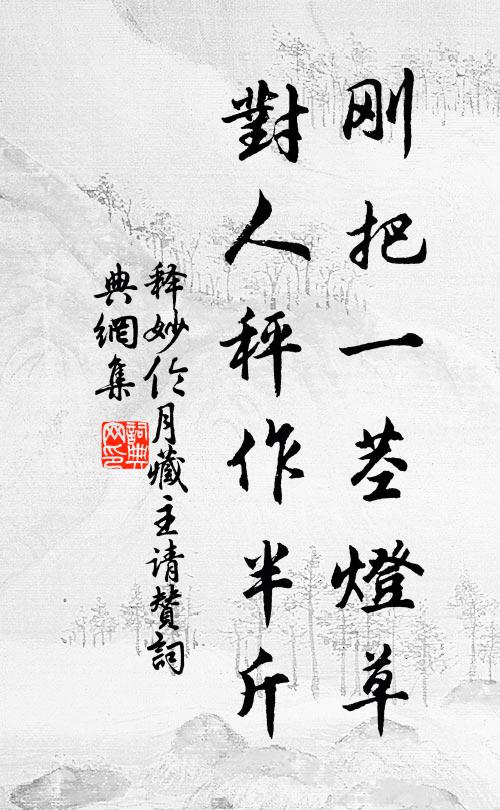 刚把一茎燈草
對人秤作半斤
释妙伦月藏主请赞詞
典網集
詞典網印